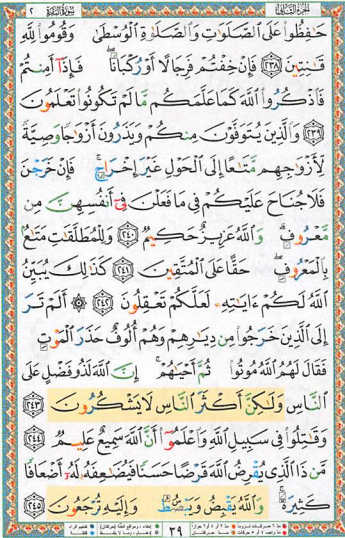 الجزء الثاني ٢ سورة البقرة
حَٰفِظُوا۟ عَلَى ٱلصَّلَوَٰتِ وَٱلصَّلَوٰةِ ٱلْوُسْطَىٰ وَقُومُوا۟ لِلَّهِ
قَٰنِتِينَ ٢٣٨ فَإِنْ خِفْتُمْ فَرِجَالًا أَوْ رُكْبَانًا ۖ فَإِذَآ أَمِنتُمْ
فَٱذْكُرُوا۟ ٱللَّهَ كَمَا عَلَّمَكُم مَّا لَمْ تَكُونُوا۟ تَعْلَمُونَ
٢٣٩ وَٱلَّذِينَ يُتَوَفَّوْنَ مِنكُمْ وَيَذَرُونَ أَزْوَٰجًا وَصِيَّةً
لِّأَزْوَٰجِهِم مَّتَٰعًا إِلَى ٱلْحَوْلِ غَيْرَ إِخْرَاجٍ ۚ فَإِنْ خَرَجْنَ
فَلَا جُنَاحَ عَلَيْكُمْ فِى مَا فَعَلْنَ فِىٓ أَنفُسِهِنَّ مِن
مَّعْرُوفٍ ۗ وَٱللَّهُ عَزِيزٌ حَكِيمٌ ٢٤٠ وَلِلْمُطَلَّقَٰتِ مَتَٰعٌۢ
بِٱلْمَعْرُوفِ ۖ حَقًّا عَلَى ٱلْمُتَّقِينَ ٢٤١ كَذَٰلِكَ يُبَيِّنُ
ٱللَّهُ لَكُمْ ءَايَٰتِهِۦ لَعَلَّكُمْ تَعْقِلُونَ ٢٤٢ ۞ أَلَمْ تَرَ
إِلَى ٱلَّذِينَ خَرَجُوا۟ مِن دِيَٰرِهِمْ وَهُمْ أُلُوفٌ حَذَرَ ٱلْمَوْتِ
فَقَالَ لَهُمُ ٱللَّهُ مُوتُوا۟ ثُمَّ أَحْيَٰهُمْ ۚ إِنَّ ٱللَّهَ لَذُو فَضْلٍ عَلَى
ٱلنَّاسِ وَلَٰكِنَّ أَكْثَرَ ٱلنَّاسِ لَا يَشْكُرُونَ ٢٤٣
وَقَٰتِلُوا۟ فِى سَبِيلِ ٱللَّهِ وَٱعْلَمُوٓا۟ أَنَّ ٱللَّهَ سَمِيعٌ عَلِيمٌ ٢٤٤
مَّن ذَا ٱلَّذِى يُقْرِضُ ٱللَّهَ قَرْضًا حَسَنًا فَيُضَٰعِفَهُۥ لَهُۥٓ أَضْعَافًا
كَثِيرَةً ۚ وَٱللَّهُ يَقْبِضُ وَيَبْصُۜطُ وَإِلَيْهِ تُرْجَعُونَ ٢٤٥
٣٩